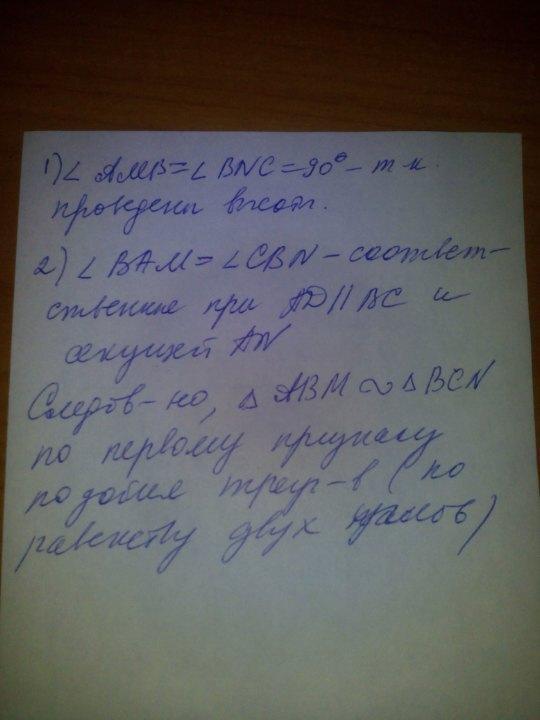 1) ∠ AMB = ∠ BNC = 90° – т.к.
проведены высоты.
2) ∠ BAM = ∠ CBN – соответ-
ственные при AD || BC и
секущей AN
Следов-но, △ ABM ∾ △ BCN
по первому признаку
подобия треуг-в (по
равенству двух углов)